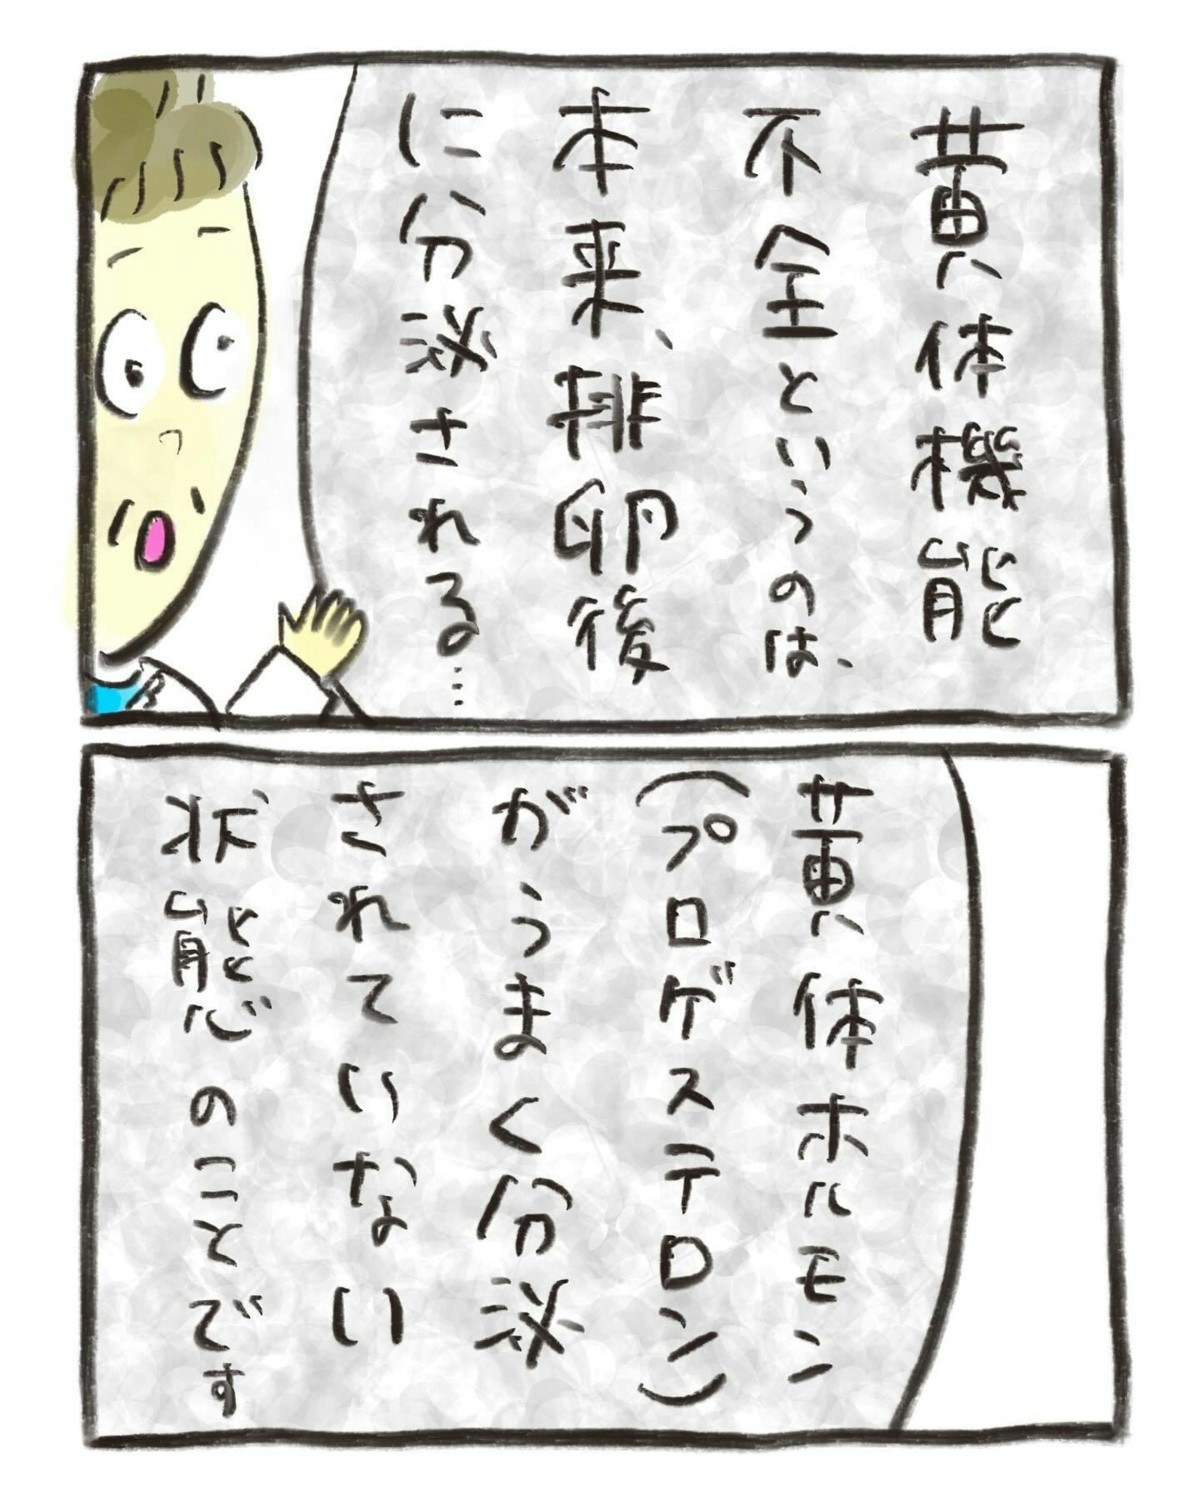 黄体機能
不全というのは、
本来、排卵後
に分泌される…
黄体ホルモン
(プロゲステロン)
がうまく分泌
されていない
状態のことです